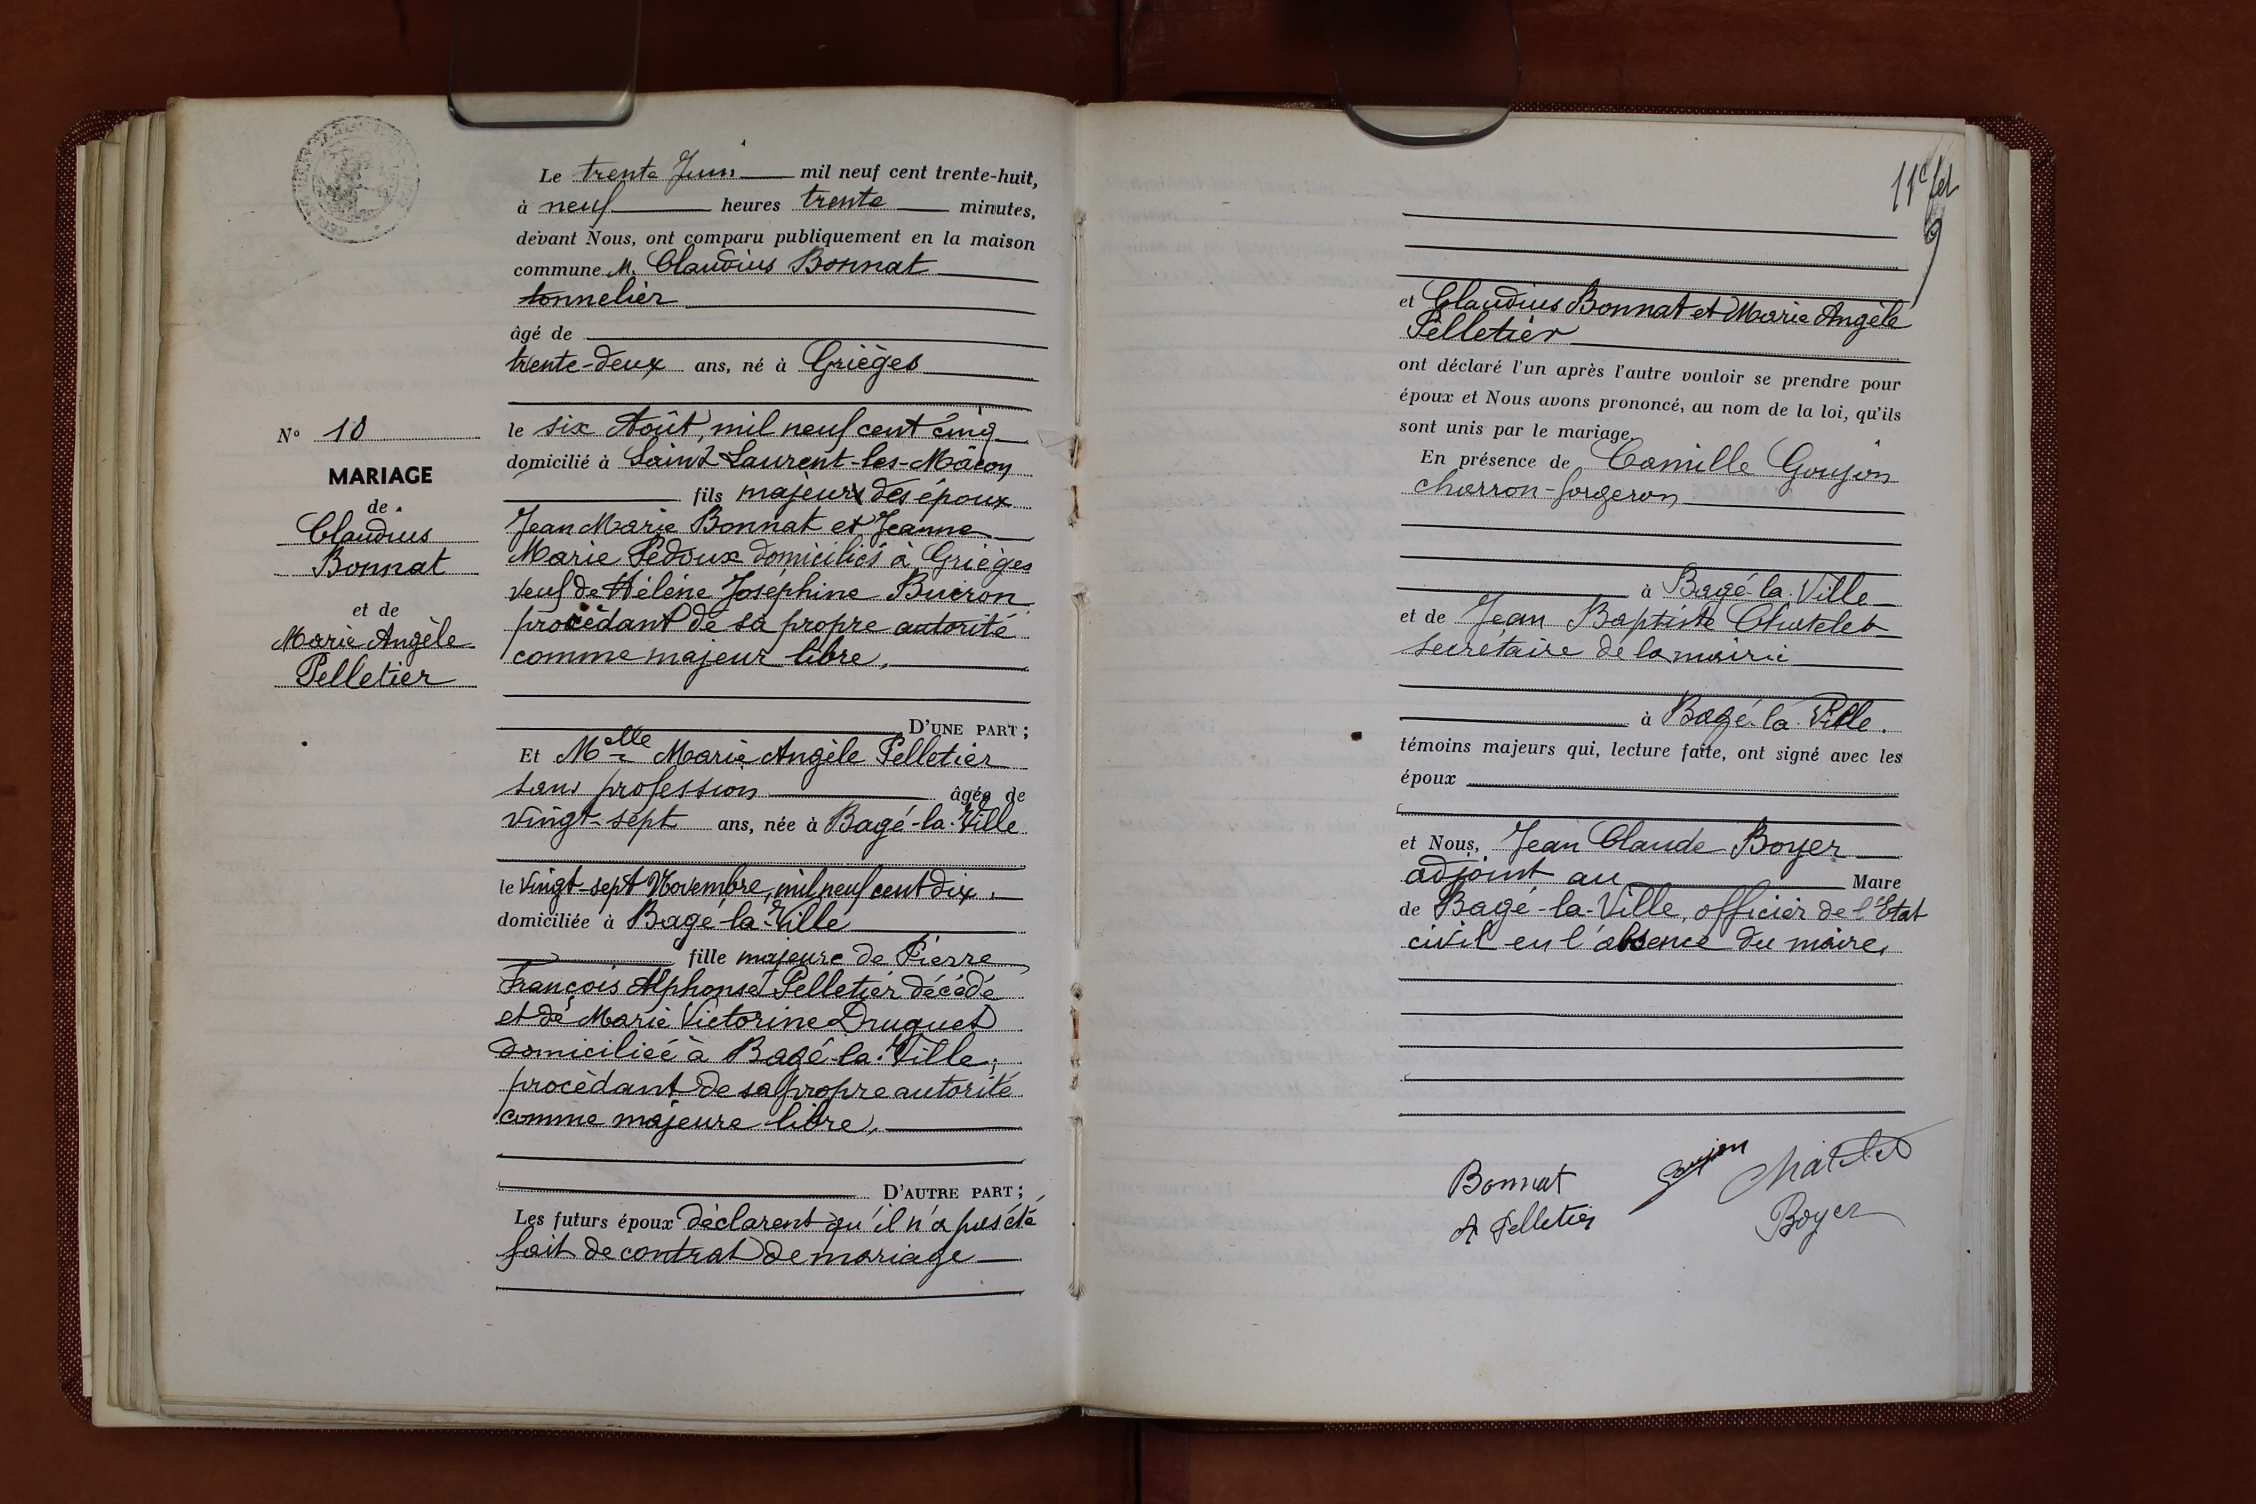 Le trente Juin mil neuf cent trente-huit,
à neuf heures trente minutes,
devant Nous, ont comparu publiquement en la maison
commune M. Claudius Bonnat
tonnelier
âgé de
trente-deux ans, né à Grièges
le six Août, mil neuf cent cinq
domicilié à Saint Laurent-les-Mâcon
fils majeur des époux
Jean Marie Bonnat et Jeanne
Marie Pédoux domiciliés à Grièges
veuf de Hélène Joséphine Buiron
procédant de sa propre autorité
comme majeur libre.
D'UNE PART ;
N° 10
MARIAGE
de
Claudius
Bonnat
et de
Marie Angèle
Pelletier
Et Melle Marie Angèle Pelletier
sans profession âgée de
vingt-sept ans, née à Bagé-la-Ville
le vingt-sept Novembre, mil neuf cent dix.
domiciliée à Bagé-la-Ville
fille majeure de Pierre
François Alphonse Pelletier décédé
et de Marie Victorine Druguet
domiciliée à Bagé-la-Ville;
procédant de sa propre autorité
comme majeure libre.
D'AUTRE PART ;
Les futurs époux déclarent qu'il n'a pas été
fait de contrat de mariage
11e fet
et Claudius Bonnat et Marie Angèle
Pelletier
ont déclaré l'un après l'autre vouloir se prendre pour
époux et Nous avons prononcé, au nom de la loi, qu'ils
sont unis par le mariage.
En présence de Camille Goujon
charron-forgeron
à Bagé-la-Ville
et de Jean Baptiste Chatelet
secrétaire de la mairie
à Bagé-la-Ville.
témoins majeurs qui, lecture faite, ont signé avec les
époux
et Nous, Jean Claude Boyer
adjoint au Maire
de Bagé-la-Ville, officier de l'Etat
civil en l'absence du maire.
Bonnat
Goujon
Chatelet
A Pelletier
Boyer